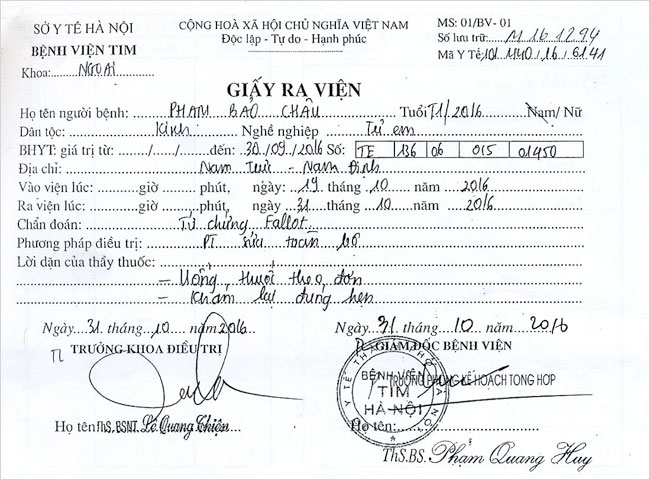 SỞ Y TẾ HÀ NỘI
BỆNH VIỆN TIM
Khoa: Ngoại
CỘNG HOÀ XÃ HỘI CHỦ NGHĨA VIỆT NAM
Độc lập - Tự do - Hạnh phúc
MS: 01/BV- 01
Số lưu trữ: M 16 1294
Mã Y Tế: 101 M40/16/6141
GIẤY RA VIỆN
Họ tên người bệnh: PHẠM BẢO CHÂU Tuổi T1/2016 Nam/ Nữ
Dân tộc: Kinh Nghề nghiệp Trẻ em
BHYT: giá trị từ....../....../...... đến: 30/09/2016 Số: TE 136 06 015 01450
Địa chỉ: Nam Trực - Nam Định
Vào viện lúc: giờ phút, ngày: 19 tháng 10 năm 2016
Ra viện lúc: giờ phút, ngày: 31 tháng 10 năm 2016
Chẩn đoán: Tứ chứng Fallot.
Phương pháp điều trị: PT sửa toàn bộ
Lời dặn của thầy thuốc:
- Uống thuốc theo đơn
- Khám lại đúng hẹn
Ngày 31 tháng 10 năm 2016
TL TRƯỞNG KHOA ĐIỀU TRỊ
Họ tên: ThS.BSNT. Lê Quang Thiện
Ngày 31 tháng 10 năm 2016
GIÁM ĐỐC BỆNH VIỆN
TRƯỞNG PHÒNG KẾ HOẠCH TỔNG HỢP
BỆNH VIỆN
TIM
HÀ NỘI
Họ tên:
ThS.BS. Phạm Quang Huy